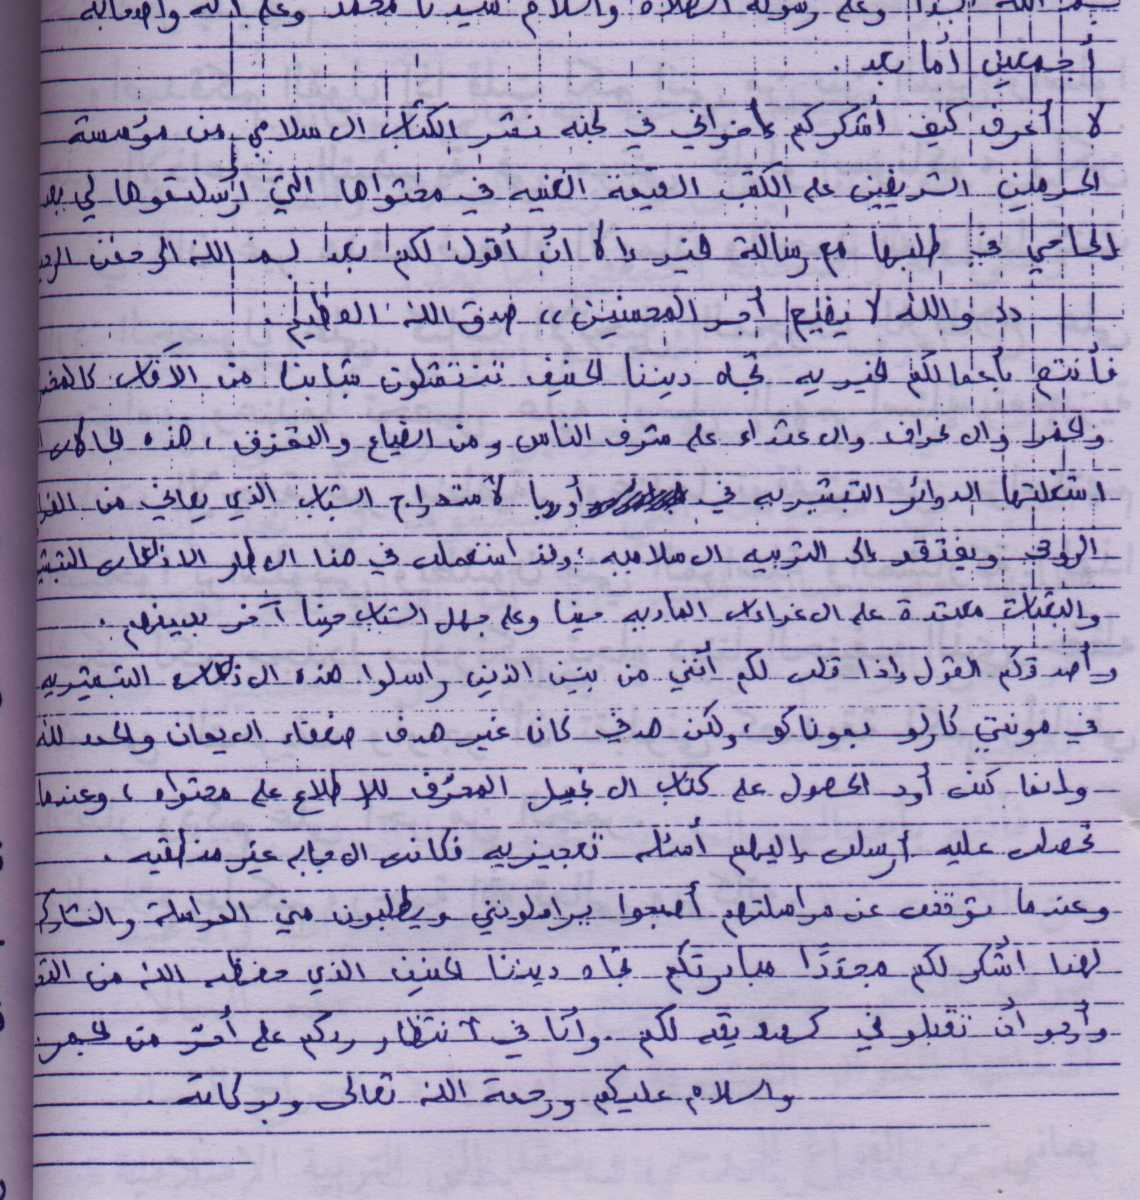 بسم الله ابدأ وعلى رسوله الصلاة والسلام سيدنا محمد وعلى آله وأصحابه
أجمعين أما بعد.
لا أعرف كيف أشكركم يا خواني في لجنة نشر الكتاب الاسلامي من مؤسسة
الحرمين الشريفين على الكتب القيمة الغنية في محتواها التي أرسلتموها لي بعد
إلحاحي في طلبها مع رسالة خير والا ان أقول لكم بعد بسم الله الرحمن الرحيم
"والله لا يضيع أجر المحسنين" صدق الله العظيم.
فأنتم بأعمالكم الخيريه تجاه ديننا الحنيف تنتشلون شبابنا من الآفات كالمخدرات
والخمر والانحراف والاعتداء على شرف الناس ومن الضياع والتمزق، هذه الحالات
استغلتها الدوائر التبشيريه في أوربا لاستدراج الشباب الذي يعاني من الفراغ
الروحي ويفتقد إلى التربيه الاسلاميه؛ وقد استعملت في هذا الاطار الاذاعات التبشيرية
والبعثات معتمدة على الاغراءات الماديه حينا وعلى جهل الشباب حينا آخر بدينهم.
وأصدقكم القول إذا قلت لكم أنني من بين الذين راسلوا هذه الاذاعات التبشيريه
في مونتي كارلو بموناكو، ولكن هدفي كان غير هدف ضعفاء الايمان والحمد لله
وانما كنت أود الحصول على كتاب الانجيل المحرف للإطلاع على محتواه، وعندما
تحصلت عليه أرسلت إليهم أسئلة تعجيزيه فكانت الاجابه غير منطقيه.
وعندما توقفت عن مراسلتهم أصبحوا يراسلونني ويطلبون مني المراسلة والمشاركة
لهذا أشكر لكم مجددا مبادرتكم تجاه ديننا الحنيف الذي حفظه الله من
وأرجو أن تقبلوني كصديقه لكم. وأنا في انتظار ردكم على أحر من الجمر
والسلام عليكم ورحمة الله تعالى وبركاته.